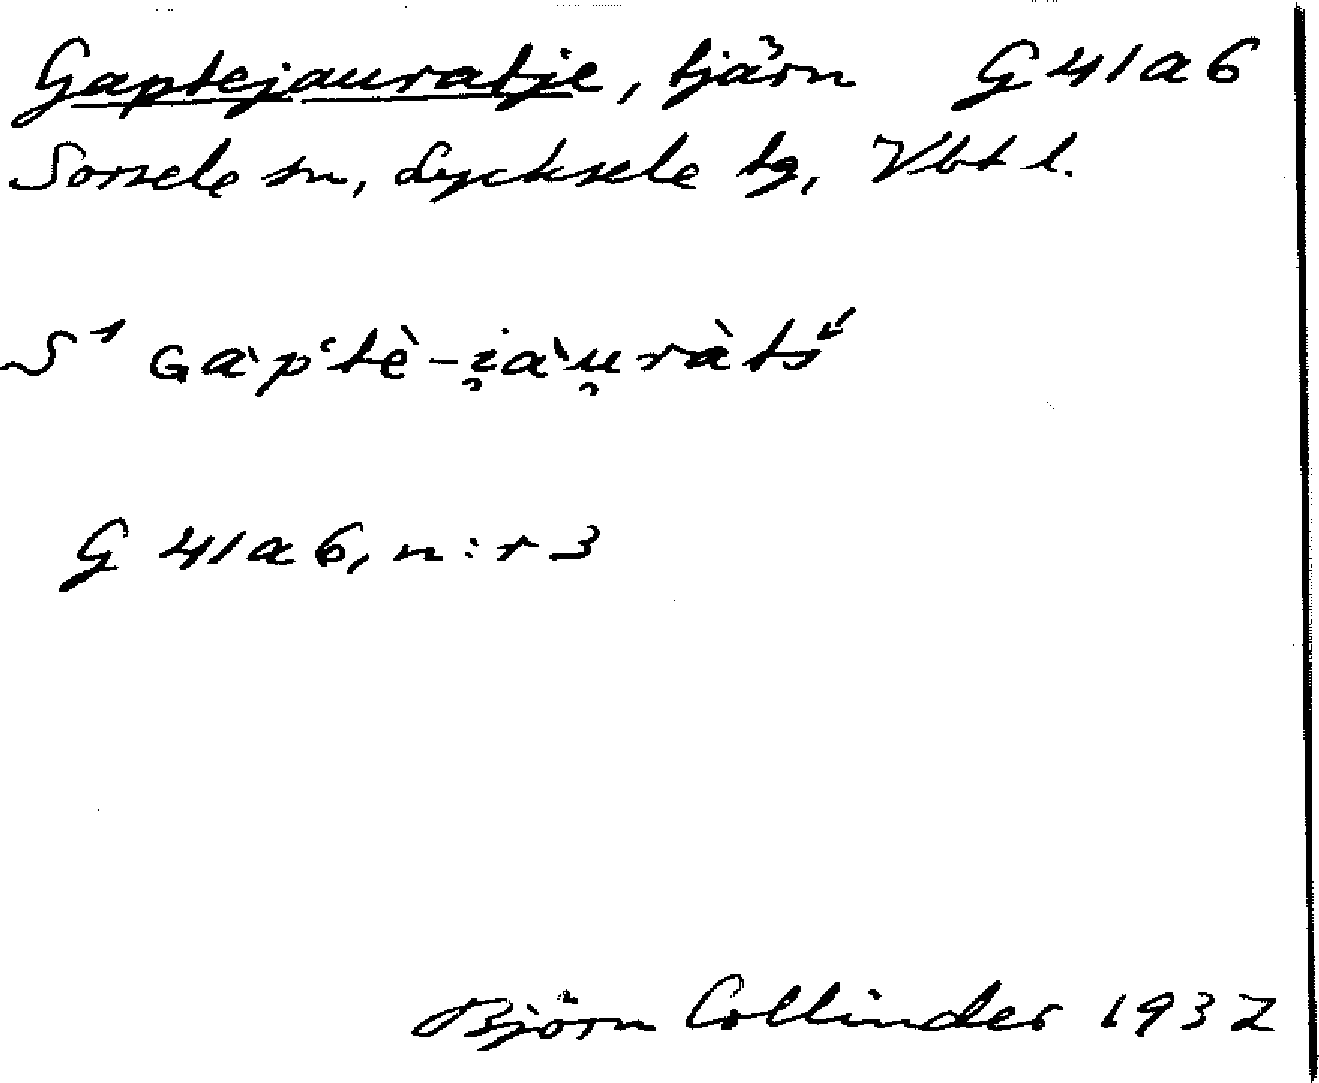 Gaptejauratje, tjärn G 41 a 6
Sorsele sn, Lycksele tg, Vbt l.
S¹ Gàpʻtè-i̯àu̯ràts՛
G 41 a 6, n:r 3
Björn Collinder 1932